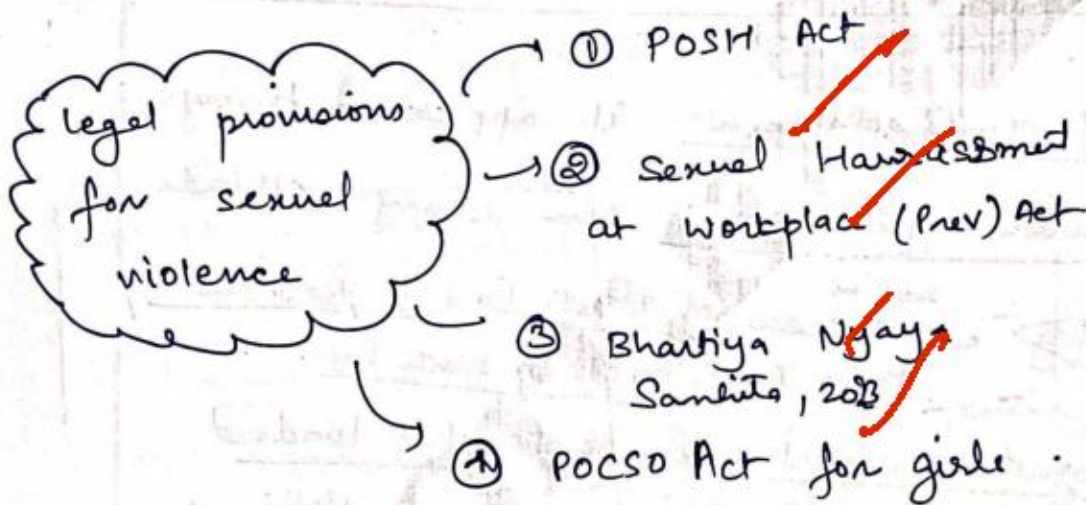 legal provisions
for sexual
violence
① POSH Act
② Sexual Harrassment
at workplace (Prev) Act
③ Bhartiya Nyaya
Sanhita, 2023
④ POCSO Act for girls.